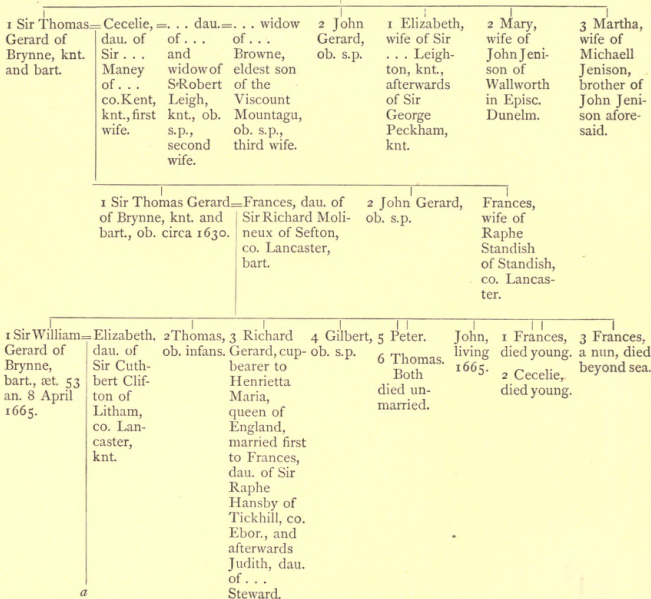 1 Sir Thomas=
Gerard of
Brynne, knt.
and bart.
Cecelie, =
dau. of
Sir . . .
Maney
of . . .
co.Kent,
knt., first
wife.
. . . dau.=
of . . .
and
widow of
Sr Robert
Leigh,
knt., ob.
s.p.,
second
wife.
. . . widow
of . . .
Browne,
eldest son
of the
Viscount
Mountagu,
ob. s.p.,
third wife.
2 John
Gerard,
ob. s.p.
1 Elizabeth,
wife of Sir
. . . Leigh-
ton, knt.,
afterwards
of Sir
George
Peckham,
knt.
2 Mary,
wife of
John Jeni-
son of
Wallworth
in Episc.
Dunelm.
3 Martha,
wife of
Michaell
Jenison,
brother of
John Jeni-
son afore-
said.
1 Sir Thomas Gerard=
of Brynne, knt. and
bart., ob. circa 1630.
Frances, dau. of
Sir Richard Moli-
neux of Sefton,
co. Lancaster,
bart.
2 John Gerard,
ob. s.p.
Frances,
wife of
Raphe
Standish
of Standish,
co. Lancas-
ter.
1 Sir William=
Gerard of
Brynne,
bart., æt. 53
an. 8 April
1665.
Elizabeth,
dau. of
Sir Cuth-
bert Clif-
ton of
Litham,
co. Lan-
caster,
knt.
2 Thomas,
ob. infans.
3 Richard
Gerard, cup-
bearer to
Henrietta
Maria,
queen of
England,
married first
to Frances,
dau. of Sir
Raphe
Hansby of
Tickhill, co.
Ebor., and
afterwards
Judith, dau.
of . . .
Steward.
4 Gilbert,
ob. s.p.
5 Peter.
6 Thomas.
Both
died un-
married.
John,
living
1665.
1 Frances,
died young.
2 Cecelie,
died young.
3 Frances,
a nun, died
beyond sea.
a